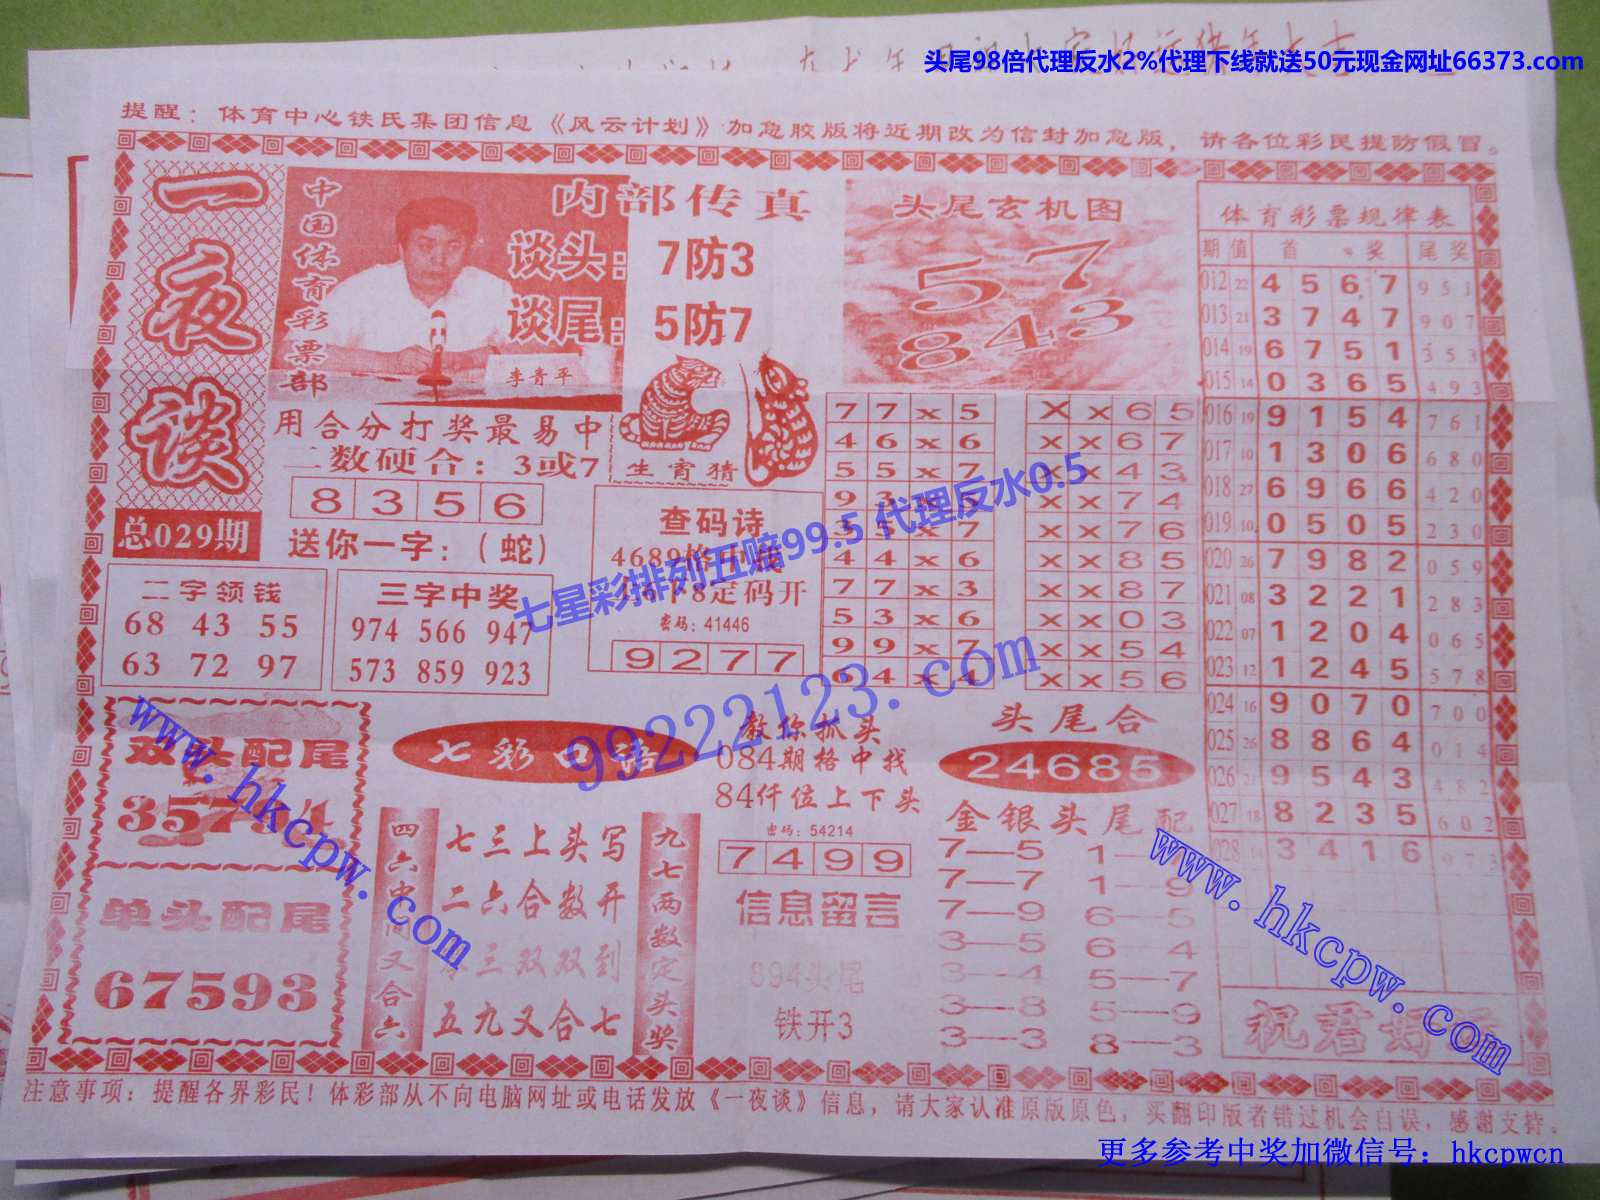 头尾98倍代理反水2%代理下线就送50元现金网址66373.com
提醒：体育中心铁民集团信息《风云计划》加急胶版将近期改为信封加急版，请各位彩民提防假冒。
一夜谈
总029期
中国体育彩票部
李青平
内部传真
谈头：7防3
谈尾：5防7
用合分打奖最易中
二数硬合：3或7
8 3 5 6
送你一字：（蛇）
生肖猜
头尾玄机图
57
843
二字领钱
68 43 55
63 72 97
三字中奖
974 566 947
573 859 923
查码诗
密码：41446
9 2 7 7
7 7 x 5
4 6 x 6
5 5 x 7
4 4 x 6
7 7 x 3
5 3 x 6
9 9 x 7
6 4 x 4
X x 6 5
x x 6 7
x x 4 3
x x 7 4
x x 7 6
x x 8 5
x x 8 7
x x 0 3
x x 5 4
x x 5 6
体育彩票规律表
期 值 首 奖 尾 奖
012 22 4 5 6 7 9 5 1
013 21 3 7 4 7 9 0 7
014 19 6 7 5 1 3 5 3
015 14 0 3 6 5 4 9 3
016 19 9 1 5 4 7 6 1
017 10 1 3 0 6 6 8 0
018 27 6 9 6 6 4 2 0
019 10 0 5 0 5 2 3 0
020 26 7 9 8 2 0 5 9
021 08 3 2 2 1 2 8 3
022 07 1 2 0 4 0 6 5
023 12 1 2 4 5 5 7 8
024 16 9 0 7 0 7 0 0
025 26 8 8 6 4 0 1 4
026 21 9 5 4 3 4 8 2
027 18 8 2 3 5 6 0 2
028 14 3 4 1 6 9 7 3
七星彩排列五赔99.5 代理反水0.5
99222123.com
双头配尾
单头配尾
67593
七彩口语
七三上头写
二六合数开
三双双到
五九又合七
九七两数定头奖
教你抓头
084期格中找
84仟位上下头
密码：54214
7 4 9 9
信息留言
894头尾
铁开3
头尾合
24685
金银头尾配
7—5
7—7 1—9
7—9 6—5
3—5 6—4
3—4 5—7
3—8 5—9
3—3 8—3
www.hkcpw.com
www.hkcpw.com
注意事项：提醒各界彩民！体彩部从不向电脑网址或电话发放《一夜谈》信息，请大家认准原版原色，买翻印版者错过机会自误，感谢支持。
更多参考中奖加微信号：hkcpwcn